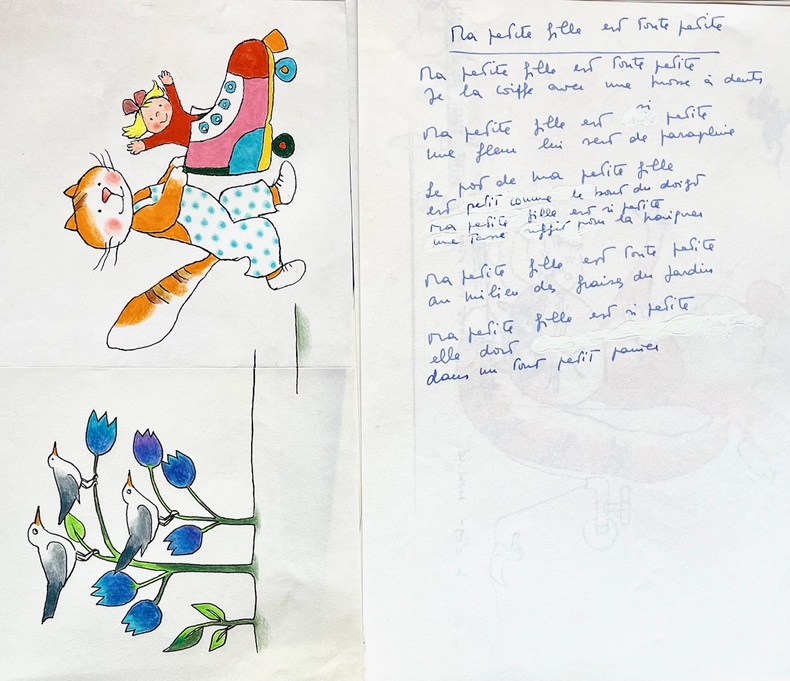 Ma petite fille est toute petite
Ma petite fille est toute petite
Je la coiffe avec une brosse à dents
Ma petite fille est si petite
une fleur lui sert de parapluie
Le pot de ma petite fille
est petit comme le bout du doigt
ma petite fille est si petite
une tasse suffit pour la baigner
Ma petite fille est toute petite
au milieu des fraises du jardin
Ma petite fille est si petite
elle dort
dans un tout petit panier